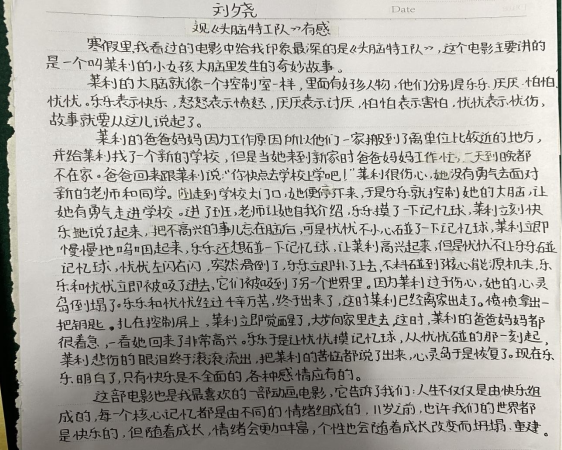 刘夕尧
Date
观《头脑特工队》有感
寒假里,我看过的电影中给我印象最深的是《头脑特工队》,这个电影主要讲的
是一个叫莱利的小女孩大脑里发生的奇妙故事。
莱利的大脑就像一个控制室一样,里面有好多人物,他们分别是乐乐、厌厌、怕怕、
忧忧。乐乐表示快乐,怒怒表示愤怒,厌厌表示讨厌,怕怕表示害怕,忧忧表示忧伤,
故事就要从这儿说起了。
莱利的爸爸妈妈因为工作原因所以他们一家搬到了离单位比较近的地方,
并给莱利找了个新的学校,但是当她来到新家时爸爸妈妈工作忙,一天到晚都
不在家。爸爸回来跟莱利说:“你快点去学校上学吧!”莱利很伤心,她没有勇气去面对
新的老师和同学。走到学校大门口,她便停下来,于是乐乐就控制她的大脑,让
她有勇气走进学校。进了班,老师让她自我介绍,乐乐摸了一下记忆球,莱利立刻快
乐地说了起来,把不高兴的事儿忘在脑后,可是忧忧不小心碰了一下记忆球,莱利立即
慢慢地呜咽起来,乐乐还想碰一下记忆球,让莱利高兴起来,但是忧忧不让乐乐碰
记忆球,忧忧左闪右闪,突然滑倒了,乐乐立即扑上去,不料碰到了核心能源机关,乐
乐和忧忧立即被吸了进去,它们被吸到了另一个世界里。因为莱利过于伤心,她的心灵
岛倒塌了。乐乐和忧忧经过千辛万苦,终于出来了,这时莱利已经离家出走了。愤愤拿出一
把钥匙。扎在控制屏上,莱利立即觉醒了,大步向家里走去,这时,莱利的爸爸妈妈都
很着急,一看她回来了非常高兴。乐乐于是让忧忧摸记忆球,从忧忧碰的那一刻起,
莱利悲伤的眼泪终于滚滚流出,把莱利的苦恼都说了出来,心灵岛于是恢复了。现在乐
乐明白了,只有快乐是不全面的,各种感情应有的。
这部电影也是我最喜欢的一部动画电影,它告诉了我们:人生不仅仅是由快乐组
成的,每一个核心记忆都是由不同的情绪组成的,11岁之前,也许我们的世界都
是快乐的,但随着成长,情绪会更加丰富,个性也会随着成长改变而坍塌、重建。